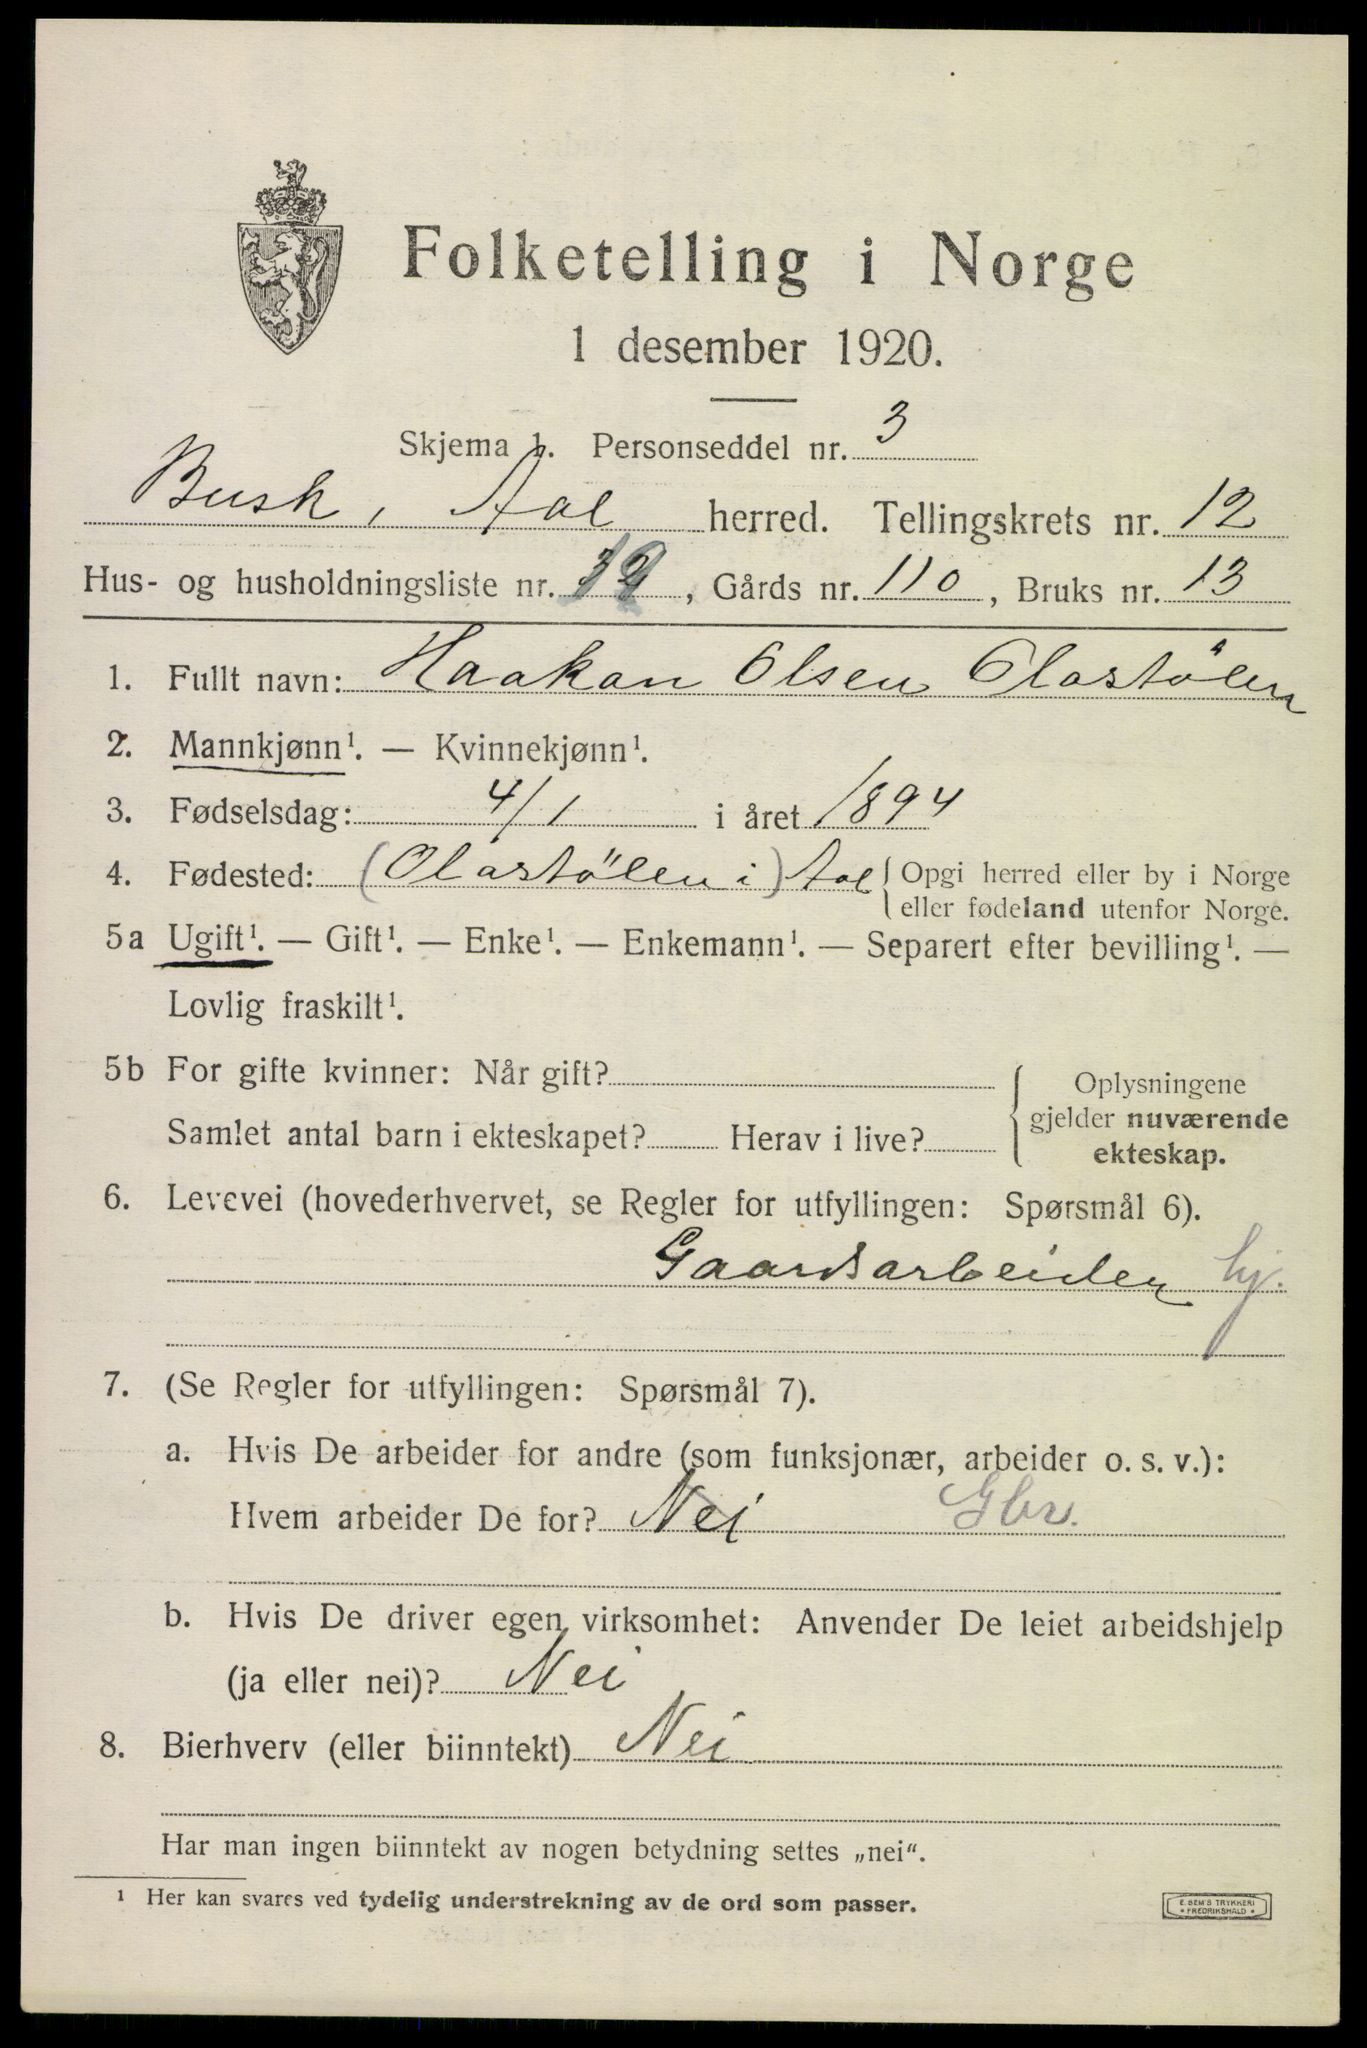 Folketelling i Norge
1 desember 1920.
Skjema 1. Personseddel nr. 3
Busk, Aal herred. Tellingskrets nr. 12
Hus- og husholdningsliste nr. , Gårds nr. 110, Bruks nr. 13
1. Fullt navn: Haakan Olsen Olastölen
2. Mannkjønn¹. — Kvinnekjønn¹.
3. Fødselsdag: 4/1 i året 1894
4. Fødested: (Olastölen i) Aal { Opgi herred eller by i Norge
eller fødeland utenfor Norge.
5a Ugift¹. — Gift¹. — Enke¹. — Enkemann¹. — Separert efter bevilling¹. —
Lovlig fraskilt¹.
5b For gifte kvinner: Når gift?
Samlet antal barn i ekteskapet? Herav i live?
Oplysningene
gjelder nuværende
ekteskap.
6. Levevei (hovederhvervet, se Regler for utfyllingen: Spørsmål 6).
Gaardsarbeider hj.
7. (Se Regler for utfyllingen: Spørsmål 7).
a. Hvis De arbeider for andre (som funksjonær, arbeider o. s. v.):
Hvem arbeider De for? Nei Gbr.
b. Hvis De driver egen virksomhet: Anvender De leiet arbeidshjelp
(ja eller nei)? Nei
8. Bierhverv (eller biinntekt) Nei
Har man ingen biinntekt av nogen betydning settes „nei“.
¹ Her kan svares ved tydelig understrekning av de ord som passer.
E. SEM'S TRYKKERI
* FREDRIKSHALD *